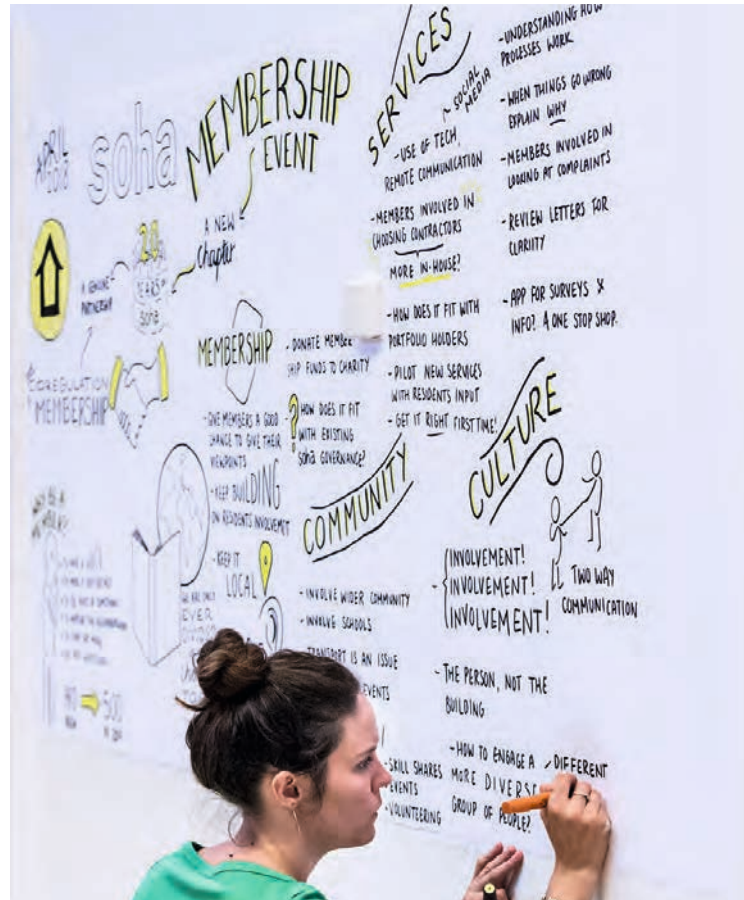 APRIL
2018
soha
MEMBERSHIP
EVENT
A NEW
chapter
20
YEARS
soha
A GENUINE
PARTNERSHIP
COREGULATION
MEMBERSHIP
MEMBERSHIP
- GIVE MEMBERS A GOOD
CHANCE TO GIVE THEIR
VIEWPOINTS
- KEEP BUILDING
ON RESIDENTS
- KEEP IT
LOCAL
- DONATE MEMBER
SHIP FUNDS TO CHARITY
? HOW DOES IT FIT
WITH EXISTING
soha GOVERNANCE?
WE ARE ONLY
EVER
500
SERVICES
~ SOCIAL
MEDIA
- USE OF TECH,
REMOTE COMMUNICATION
- MEMBERS INVOLVED IN
CHOOSING CONTRACTORS
MORE IN-HOUSE?
- HOW DOES IT FIT WITH
PORTFOLIO HOLDERS
- PILOT NEW SERVICES
WITH RESIDENTS INPUT
- GET IT RIGHT FIRST TIME!
- UNDERSTANDING HOW
PROCESSES WORK
- WHEN THINGS GO WRONG
EXPLAIN WHY
- MEMBERS INVOLVED IN
LOOKING AT COMPLAINTS
- REVIEW LETTERS FOR
CLARIITY
- APP FOR SURVEYS &
INFO? A ONE STOP SHOP.
COMMUNITY
- INVOLVE WIDER COMMUNITY
- INVOLVE SCHOOLS
TRANSPORT IS AN ISSUE
EVENTS
- SKILL SHARES
EVENTS
- VOLUNTEERING
CULTURE
- INVOLVEMENT!
INVOLVEMENT!
INVOLVEMENT!
TWO WAY
COMMUNICATION
- THE PERSON, NOT THE
BUILDING
- HOW TO ENGAGE A DIFFERENT
MORE
GROUP OF PEOPLE?